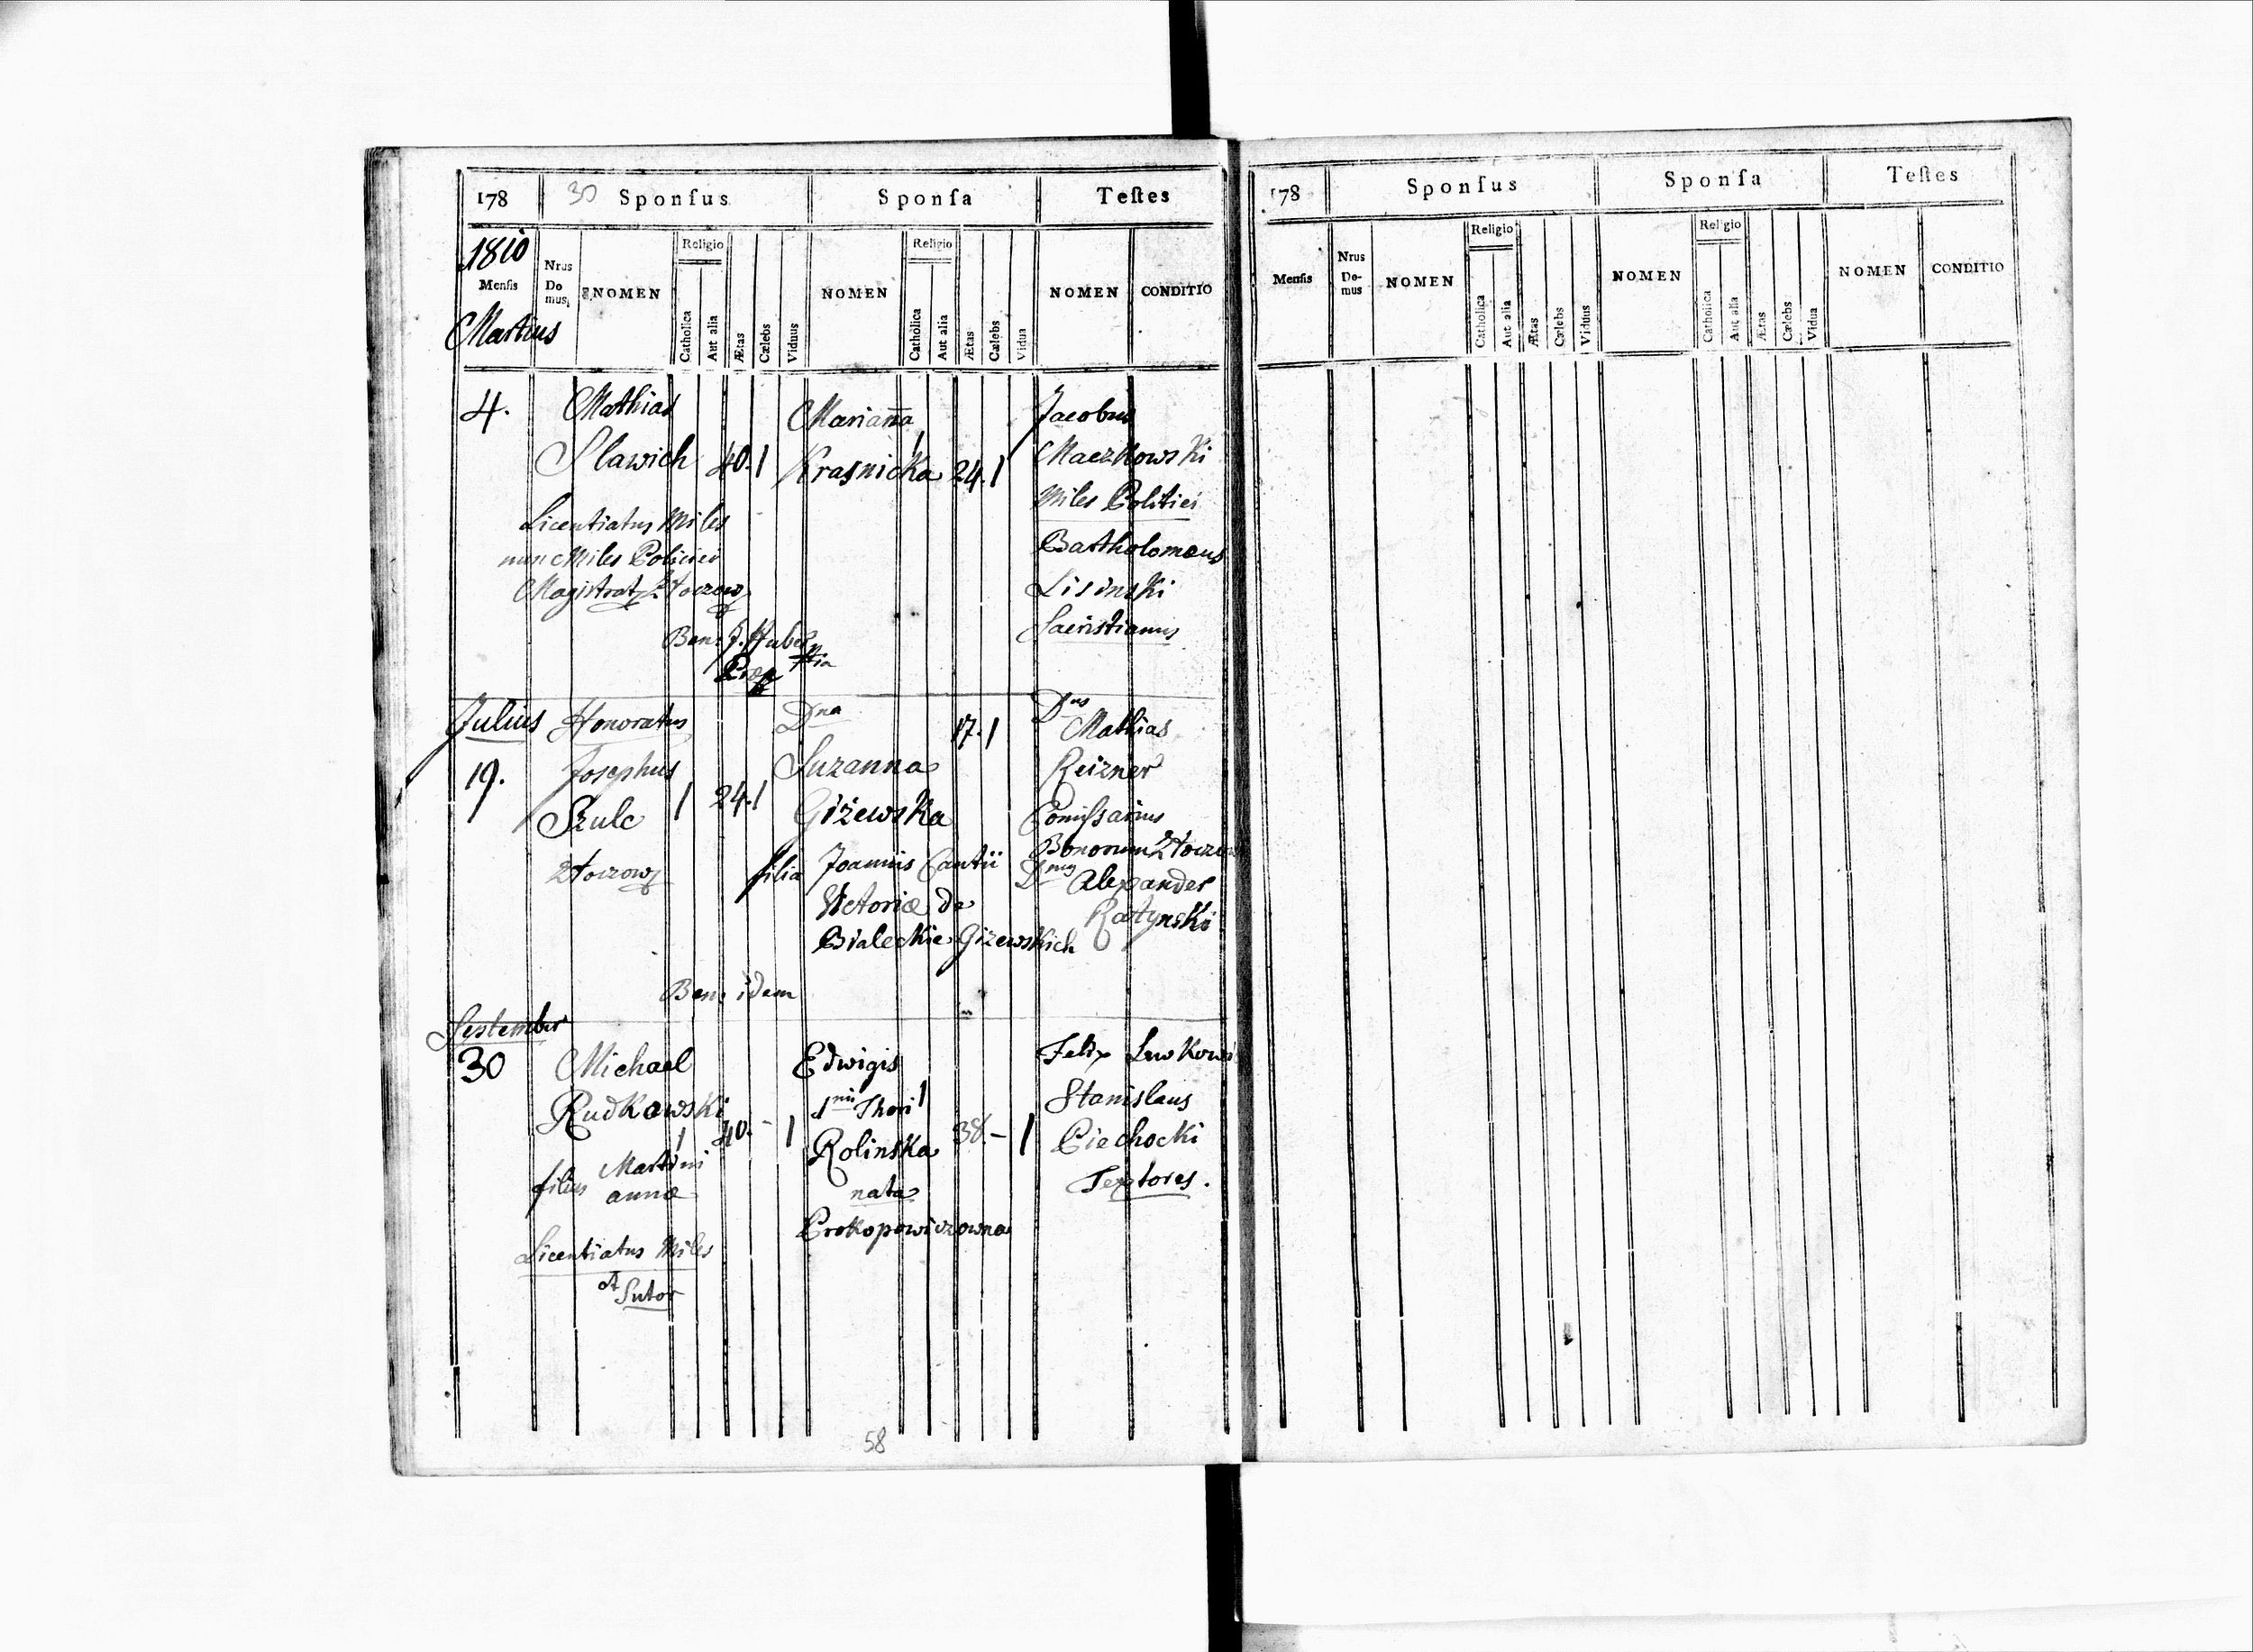 178 30 Sponſus Sponſa Teſtes
1810
Menſis Nrus Domus NOMEN Religio Catholica Aut alia Ætas Cælebs Viduus NOMEN Religio Catholica Aut alia Ætas Cælebs Vidua NOMEN CONDITIO
Martius
4. Mathias Marianna Jacobus
Slawich 40. 1 Krasnicka 1 24. 1 Maczkowski
Licentiatus Miles Miles Politiei
nunc Miles Policiei Bartholomæus
Magistrat Złoczow Lisinski
Ben: J. Huber Sacristianus
Julius Honoratus Dna Dnus
17. 1 Mathias
19. Josephus Suzanna Reizner
Szulc 1 24. 1 Giżewska Comiſsarius
Bonorum
Złoczow filia Joannis Cantii Dnus Alexander
Victoriæ de Ratynski
Bialeckie Giżewskich
Ben: idem
September
30 Michael Edwigis Felix
Rudkowski 1mi Thori 1 Stanislaus
1 40. - 1 Rolinska 38. - 1 Ciechocki
filius Martini nata Textores.
annæ
Prokopowiczowna
Licentiatus Miles
et Sutor
58
178 Sponſus Sponſa Teſtes
Menſis Nrus Domus NOMEN Religio Catholica Aut alia Ætas Cælebs Viduus NOMEN Religio Catholica Aut alia Ætas Cælebs Vidua NOMEN CONDITIO